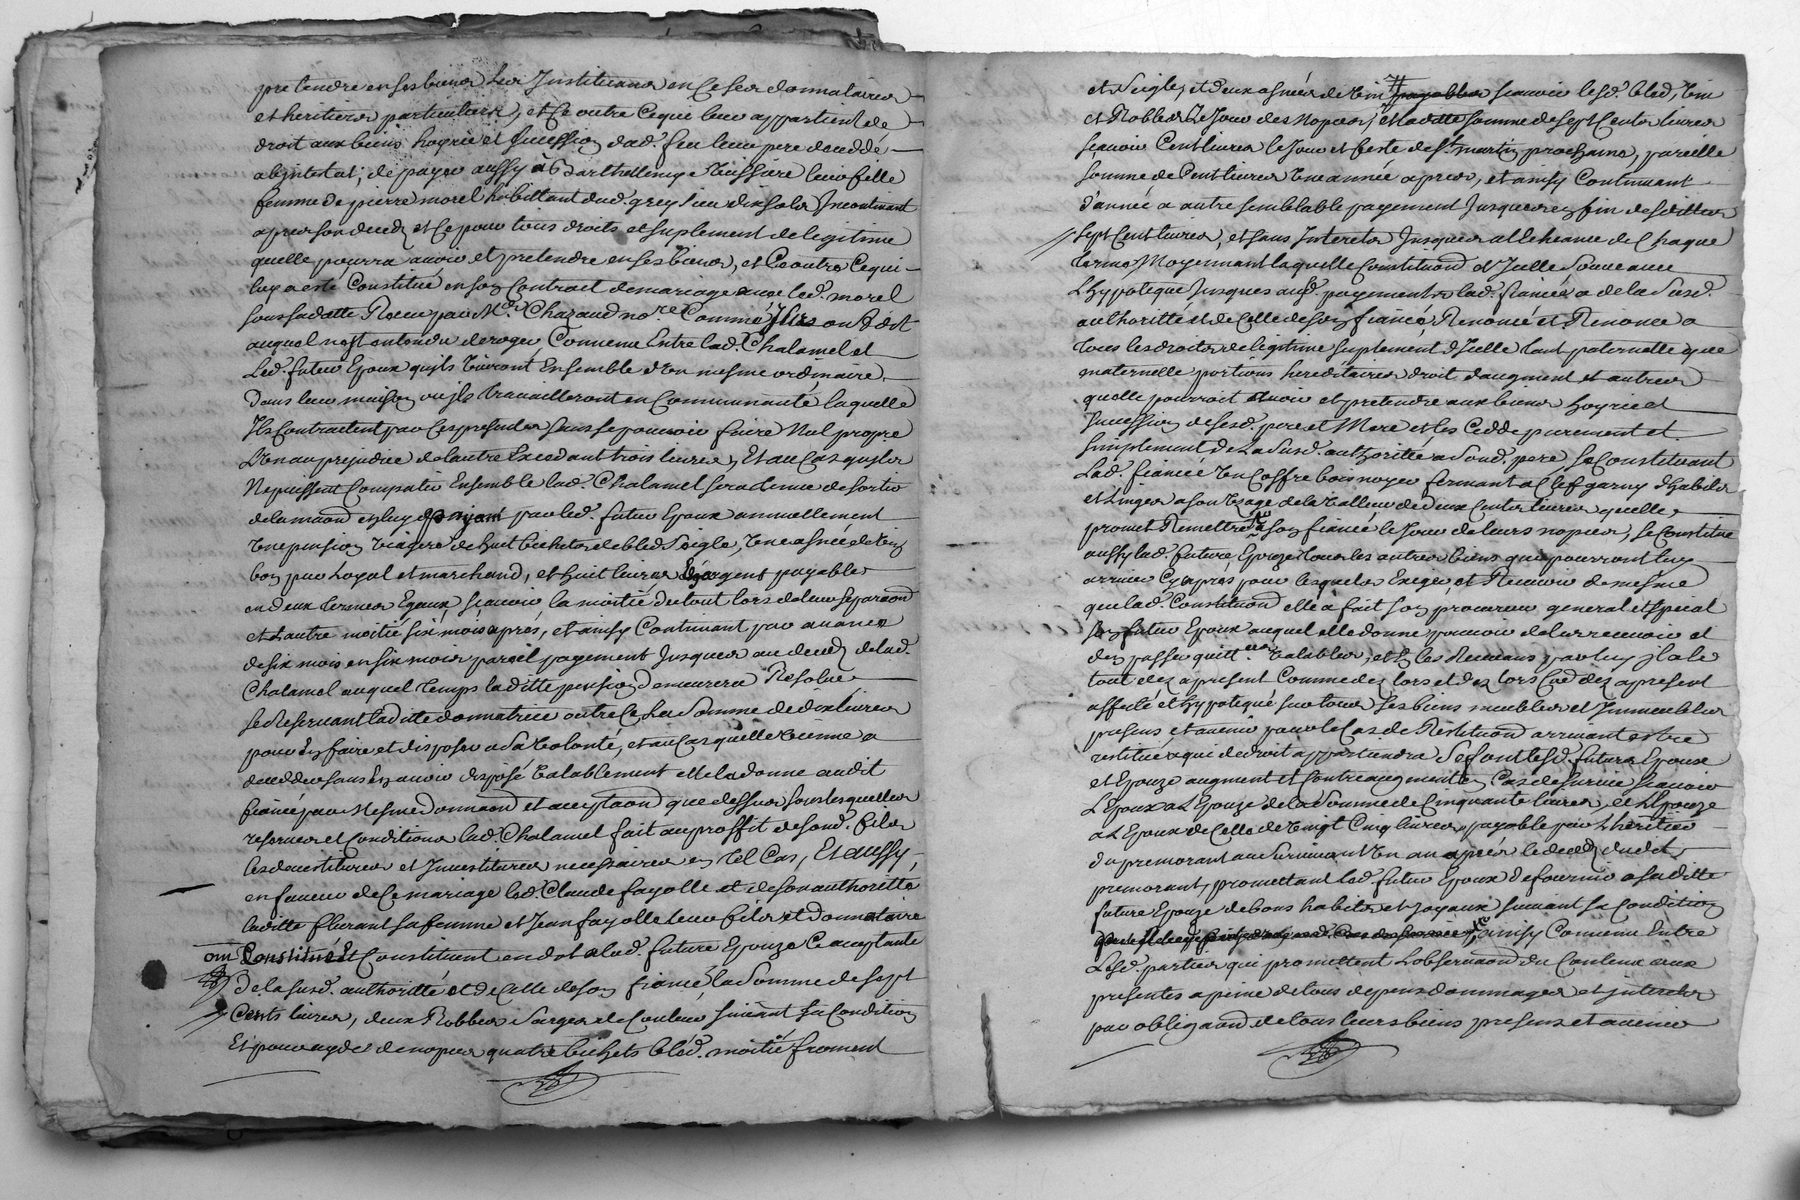 pretendre en ses biens Les Instituant en ce ses donnataires
et heritiers particuliers, et ce outre ce que leur appartient de
droit aux biens hoyrie et succession dud. feu leur pere decedde
abintestat; de payer aussy à Barthellemye Tissaire leur fille
femme de pierre morel habittant dud. grezieu dix solz Incontinant
apres son decedz et ce pour tous droits et suplement de legitime
quelle pourra avoir et pretendre en ses biens, et ce outre ce qui
luy a esté Constitué en son Contract de mariage avec led. morel
sous sa datte Receu par Me. Chazaud nore Comme Ilz ont dit
auquel nest entendu deroger Convenu Entre lad. Chalamel et
Led. futeur Epoux quils vivront Ensemble d'un mesme ordinaire
dans leur maison ou ils travailleront en Communauté laquelle
Ils Contractent par ces presentes sans se pouvoir faire Nul propre
L'un au prejudice de lautre Excedant trois livres, Et au Cas quils
Ne puissent Compatir Ensemble lad. Chalamel sera tenue de sortir
de la maion en luy payant par led. futeur Epoux annuellement
Une pension viagere de huit bichets de bled seigle, Une asnée de vin
bon pur Loyal et marchand, et huit livres d'argent payable
en deux termes Egaux scavoir la moitié du tout lors de leur separaon
et L'autre moitié six mois après, et ainsy Continuant par avance
de six mois en six mois pareil payement Jusques au decedz de lad.
Chalamel auquel temps laditte pension demeurera Resolue
se Reservant laditte donnatrice outre ce La somme de dix livres
pour En faire et disposer a sa volonté, et au Cas quelle vienne a
decedder sans En avoir disposé valablement elle la donne audit
fiancé par Mesme donnaon et acceptaon que dessus sous lesquelles
reserves et Conditions lad. Chalamel fait au proffit de sond. filz
les devestitures et Investitures necessaires en tel Cas, Et aussy
en faveur de ce mariage led. Claude fayolle et de son authoritté
laditte flurant sa femme et Jean fayolle leur filz et donnataire
ont Constitué Et Constituent en dot a lad. future Epouze Ce acceptante
De la susd. authoritté et de Celle de son fiancé, la somme de sept
Cents livres, deux Robbes sarges de Couleur suivant sa Condition
Et pour ayder de nopces quatre bichets bled. moitié froment
et seigle, et deux asnées de vin payables scavoir lesd. bled, vin
et Robbes Le Jour des nopces, et laditte somme de sept Cents livres
scavoir Cent livres le Jour et feste de St. martin prochaine, pareille
somme de Cent livres Une année apres, et ainsy Continuant
d'année a autre semblable payement Jusques en fin desdittes
sept Cent livres, et sans Interets Jusques a lecheance de Chaque
terme Moyennant laquelle Constituaon et d'Icelle
L'hypoteque Jusques aud. payement lad. fiancée a de la susd.
authoritté et de Celle de son fiancé Renoncé et Renonce a
tous les droits de legitime suplement d'Icelle tant paternelle que
maternelle portions hereditaires droit daugment et autres
quelle pourroit avoir et pretendre aux biens hoyrie et
succession de sesd. pere et Mere et les Cedde purement et
simplement de La susd. authoritté a sond. pere se Constituant
Lad. fiancée Un Coffre bois noyer fermant a Clef garny d'habits
et Linges a son Usage de la valleur de deux Cents livres quelle
promet Remettre a son fiancé le Jour de leurs nopces, se Constitue
aussy lad. future Epouze tous les autres biens que pourront luy
arriver Cy apres pour lesquels Exiger et Recevoir de mesme
que lad. Constituaon elle à fait son procureur general et special
son futeur Epoux auquel elle donne pouvoir de les recevoir et
den passer quitt.ces valables, et En les Recevans par luy Il a le
tout dez a present Comme dez lors et dez lors Comme dez a present
affecté et hypotequé sur tous ses biens meubles et Immeubles
presens et avenir pour le Cas de Restituaon arrivant estre
restitué a qui de droit appartiendra Se font lesd. futurs Epoux
et Epouze augment et Contreaugment En Cas de survie scavoir
L'Epoux a L'Epouze de la somme de Cinquante livres, et L'Epouze
a L'Epoux de Celle de vingt Cinq livres, payable par L'heritier
du premourant au survivant Un an apres le decedz dudit
premourant, promettant led. futeur Epoux de fournir a saditte
future Epouze de bons habits et Joyaux suivant sa Condition
ainsy Convenu Entre
Lesd. parties qui promettent L'observaon du Contenu aux
presentes a peine de tous depens dommages et Interets
par obligaon de tous leurs biens presens et avenir